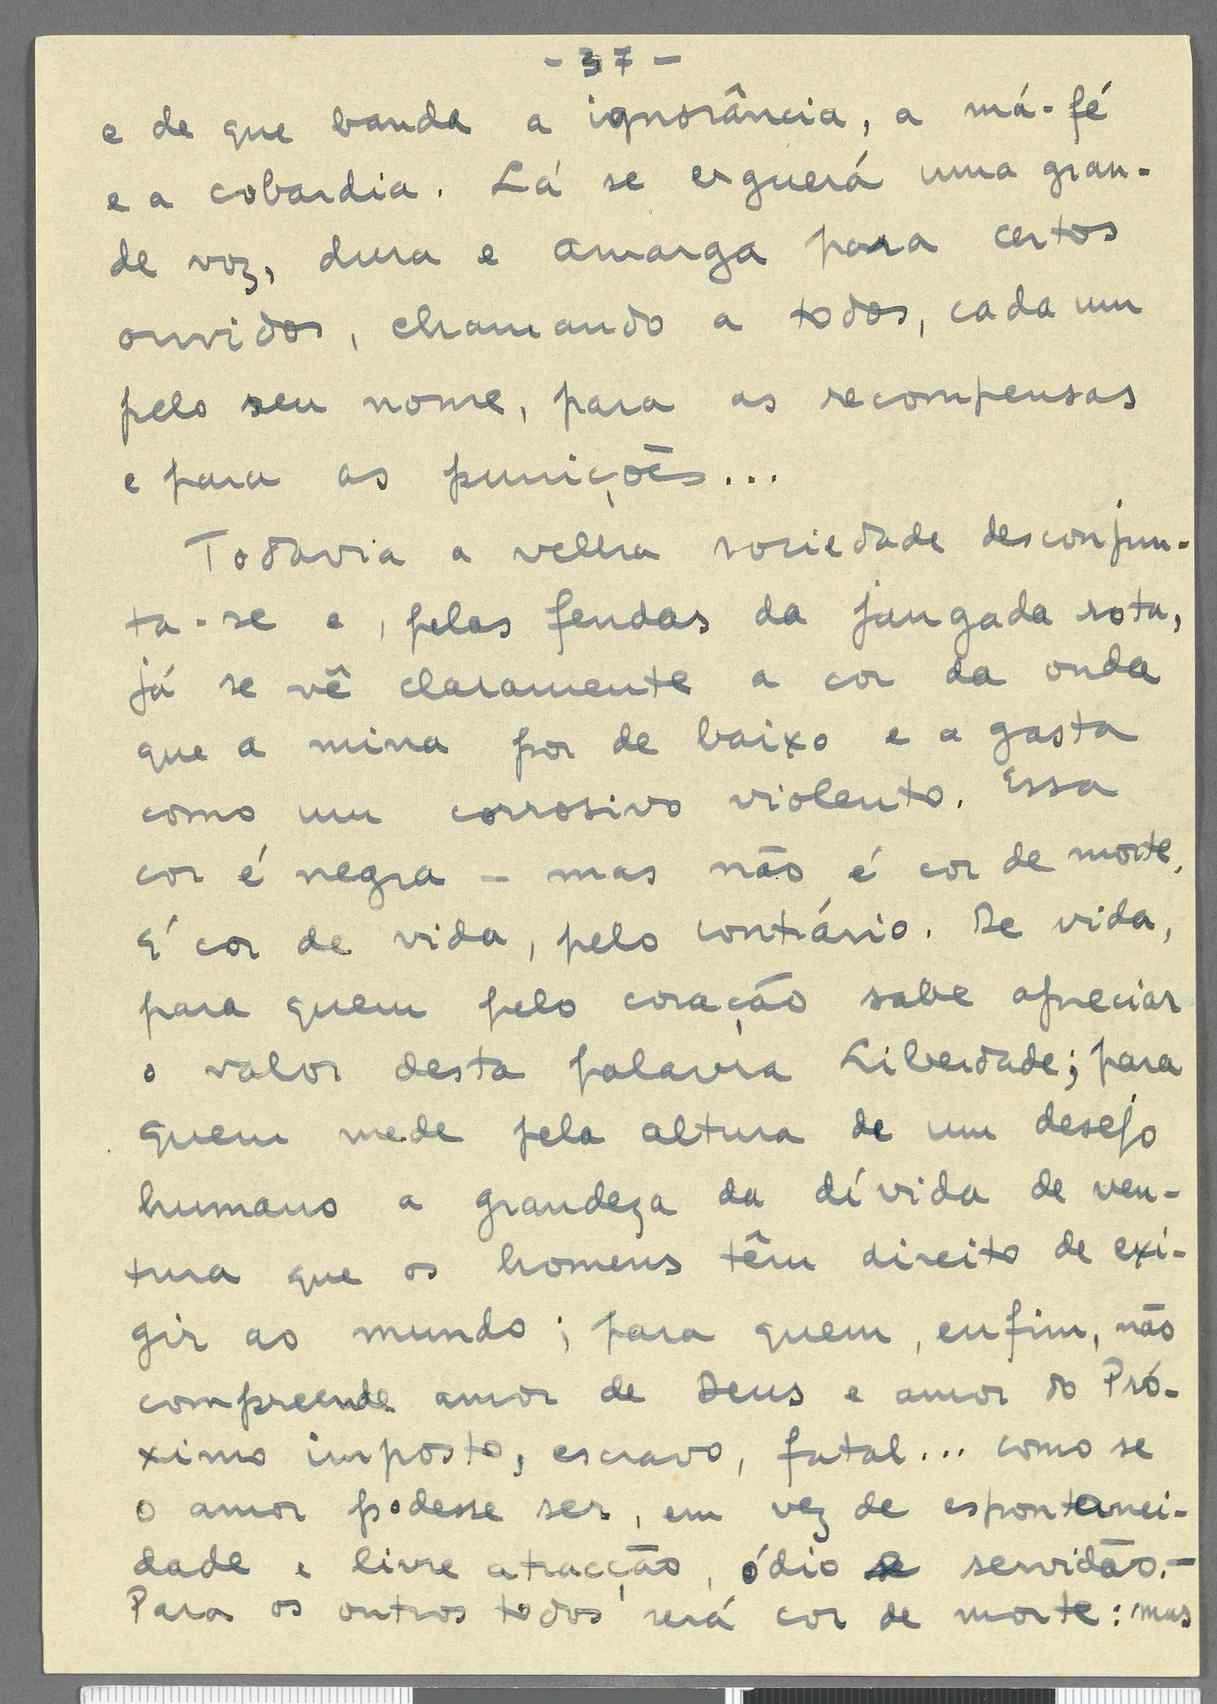 - 37 -
e de que banda a ignorância, a má-fé
e a cobardia. Lá se erguerá uma gran-
de voz, dura e amarga para certos
ouvidos, chamando a todos, cada um
pelo seu nome, para as recompensas
e para as punições...
Todavia a velha sociedade desconjun-
ta-se e, pelas fendas da jangada rota,
já se vê claramente a cor da onda
que a mina por de baixo e a gasta
como um corrosivo violento. Essa
cor é negra - mas não é cor de morte.
É cor de vida, pelo contrário. De vida,
para quem pelo coração sabe apreciar
o valor desta palavra Liberdade; para
quem mede pela altura de um desejo
humano a grandeza da dívida de ven-
tura que os homens têm direito de exi-
gir ao mundo; para quem, enfim, não
compreende amor de Deus e amor do Pró-
ximo imposto, escravo, fatal... como se
o amor podesse ser, em vez de espontanei-
dade e livre atracção, ódio e servidão.-
Para os outros todos será cor de morte: mas